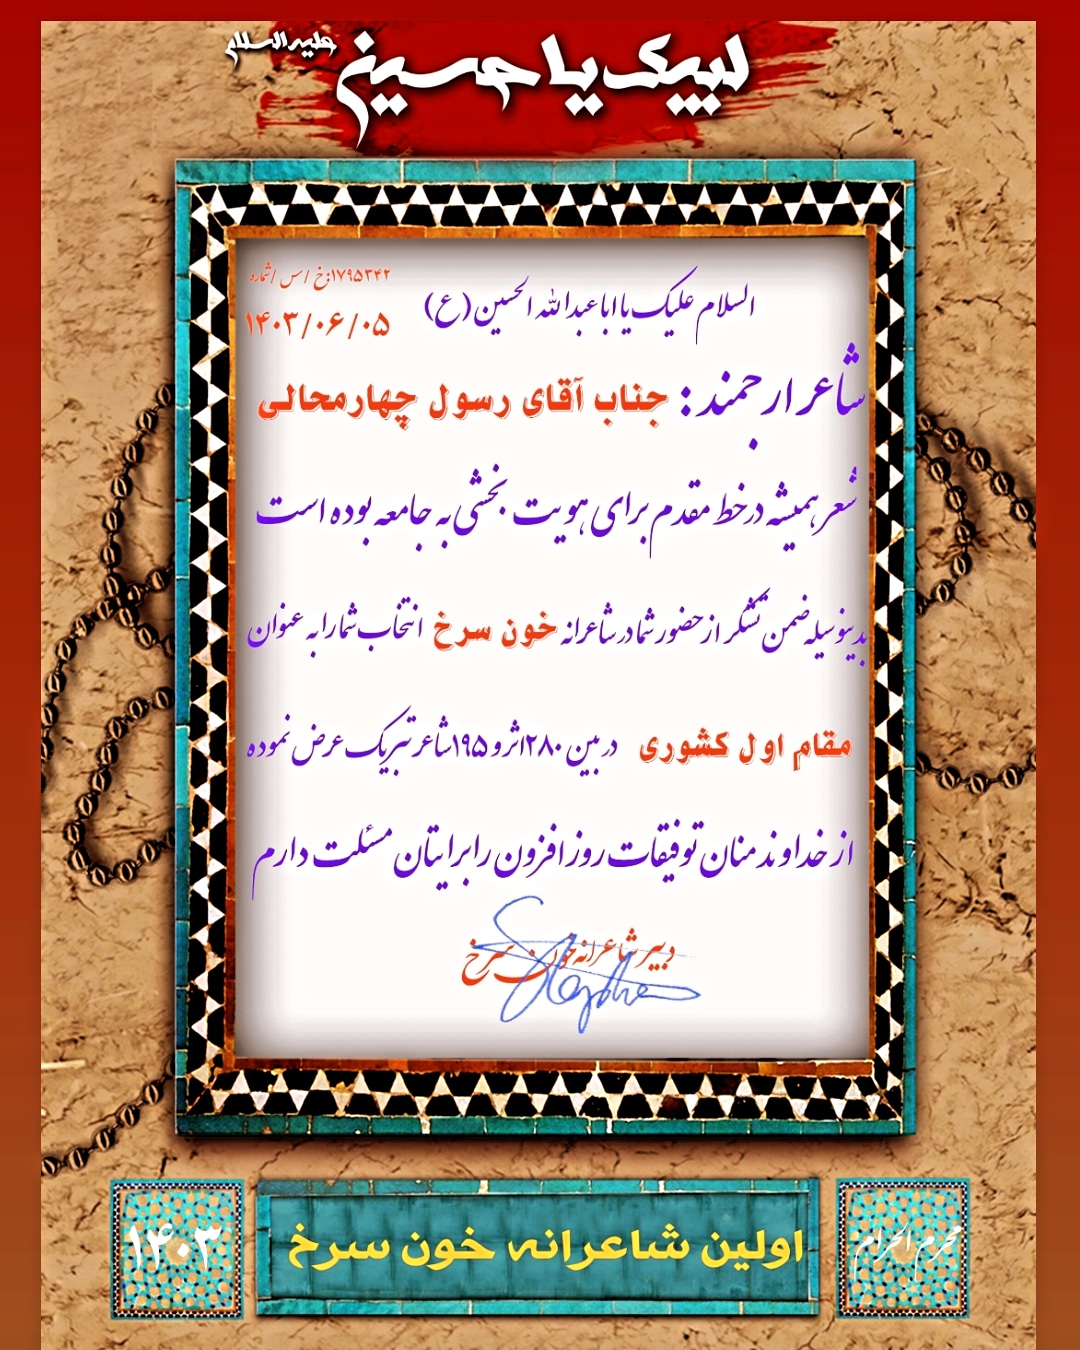 لبیک یا حسین علیه السلام
۱۷۹۵۳۴۲:خ /س /شماره
۱۴۰۳/۰۶/۰۵
السلام علیک یا ابا عبدالله الحسین (ع)
شاعر ارجمند : جناب آقای رسول چهارمحالی
شعر همیشه در خط مقدم برای هویت بخشی به جامعه بوده است
بدینوسیله ضمن تشکر از حضور شما در شاعرانه خون سرخ انتخاب شما را به عنوان
مقام اول کشوری در بین ۲۸۰ اثر و ۱۹۵ شاعر تبریک عرض نموده
از خداوند منان توفیقات روز افزون را برایتان مسئلت دارم
دبیر شاعرانه خون سرخ
محرم الحرام
اولین شاعرانه خون سرخ
۱۴۰۳